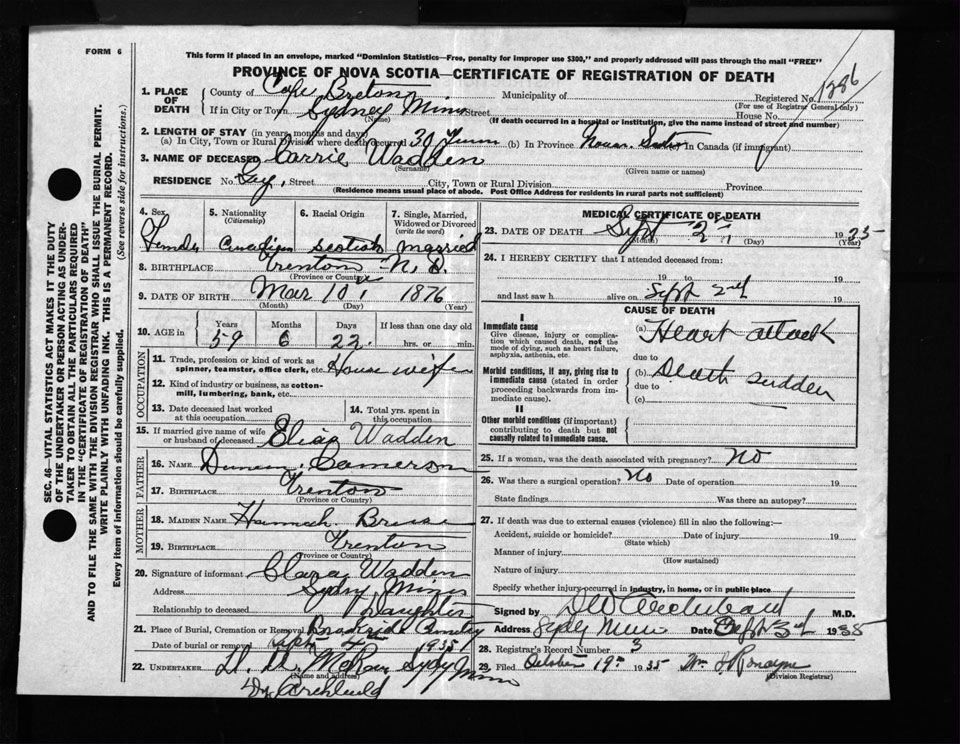 FORM 6
This form if placed in an envelope, marked "Dominion Statistics—Free, penalty for improper use $300," and properly addressed will pass through the mail "FREE"
PROVINCE OF NOVA SCOTIA—CERTIFICATE OF REGISTRATION OF DEATH
SEC. 46—VITAL STATISTICS ACT MAKES IT THE DUTY
OF THE UNDERTAKER OR PERSON ACTING AS UNDER-
TAKER TO OBTAIN ALL THE PARTICULARS REQUIRED
IN THE "CERTIFICATE OF REGISTRATION OF DEATH"
AND TO FILE THE SAME WITH THE DIVISION REGISTRAR WHO SHALL ISSUE THE BURIAL PERMIT.
WRITE PLAINLY WITH UNFADING INK. THIS IS A PERMANENT RECORD.
Every item of information should be carefully supplied. (See reverse side for instructions.)
1. PLACE OF DEATH
County of Cape Breton Municipality of Registered No. 1286
(For use of Registrar General only)
If in City or Town Sydney Mines Street House No.
(Name) (If death occurred in a hospital or institution, give the name instead of street and number)
2. LENGTH OF STAY (in years, months and days)
(a) In City, Town or Rural Division where death occurred 30 Years (b) In Province Nova Scotia (c) In Canada (if immigrant)
3. NAME OF DECEASED Carrie Wadden
(Surname) (Given name or names)
RESIDENCE No. Street City, Town or Rural Division Province
(Residence means usual place of abode. Post Office Address for residents in rural parts not sufficient)
4. Sex 5. Nationality (Citizenship) 6. Racial Origin 7. Single, Married, Widowed or Divorced (write the word)
Female Canadian Scotish married
8. BIRTHPLACE Trenton N. S.
(Province or Country)
9. DATE OF BIRTH Mar 10 1876
(Month) (Day) (Year)
10. AGE in Years Months Days If less than one day old
59 6 22 hrs. or min.
OCCUPATION
11. Trade, profession or kind of work as spinner, teamster, office clerk, etc. House wife
12. Kind of industry or business, as cotton-mill, lumbering, bank, etc.
13. Date deceased last worked at this occupation
14. Total yrs. spent in this occupation
15. If married give name of wife or husband of deceased Elias Wadden
FATHER
16. NAME Duncan Cameron
17. BIRTHPLACE Trenton
(Province or Country)
MOTHER
18. MAIDEN NAME Hannah
19. BIRTHPLACE Trenton
(Province or Country)
20. Signature of informant Clara Wadden
Address Sydney Mines
Relationship to deceased Daughter
21. Place of Burial, Cremation or Removal Brookside Cemetery
Date of burial or removal Sept 4 1935
22. UNDERTAKER McRae Sydney Mines
(Name and address)
Dr Archibald
MEDICAL CERTIFICATE OF DEATH
23. DATE OF DEATH Sept 2 1935
(Month) (Day) (Year)
24. I HEREBY CERTIFY that I attended deceased from:
19 to 19
and last saw h alive on Sept 2nd 19
CAUSE OF DEATH
I
Immediate cause
Give disease, injury or complication which caused death, not the mode of dying, such as heart failure, asphyxia, asthenia, etc.
(a) Heart attack
due to
Morbid conditions, if any, giving rise to immediate cause (stated in order proceeding backwards from immediate cause).
(b) Death sudden
due to
(c)
II
Other morbid conditions (if important) contributing to death but not causally related to immediate cause.
25. If a woman, was the death associated with pregnancy? No
26. Was there a surgical operation? No Date of operation 19
State findings Was there an autopsy?
27. If death was due to external causes (violence) fill in also the following:—
Accident, suicide or homicide? Date of injury 19
(State which)
Manner of injury
(How sustained)
Nature of injury
Specify whether injury occurred in industry, in home, or in public place
Signed by Archibald M.D.
Address Sydney Mines Date Sept 3rd 1935
28. Registrar's Record Number 3
29. Filed October 19th 1935 Wm J Ronayne
(Division Registrar)